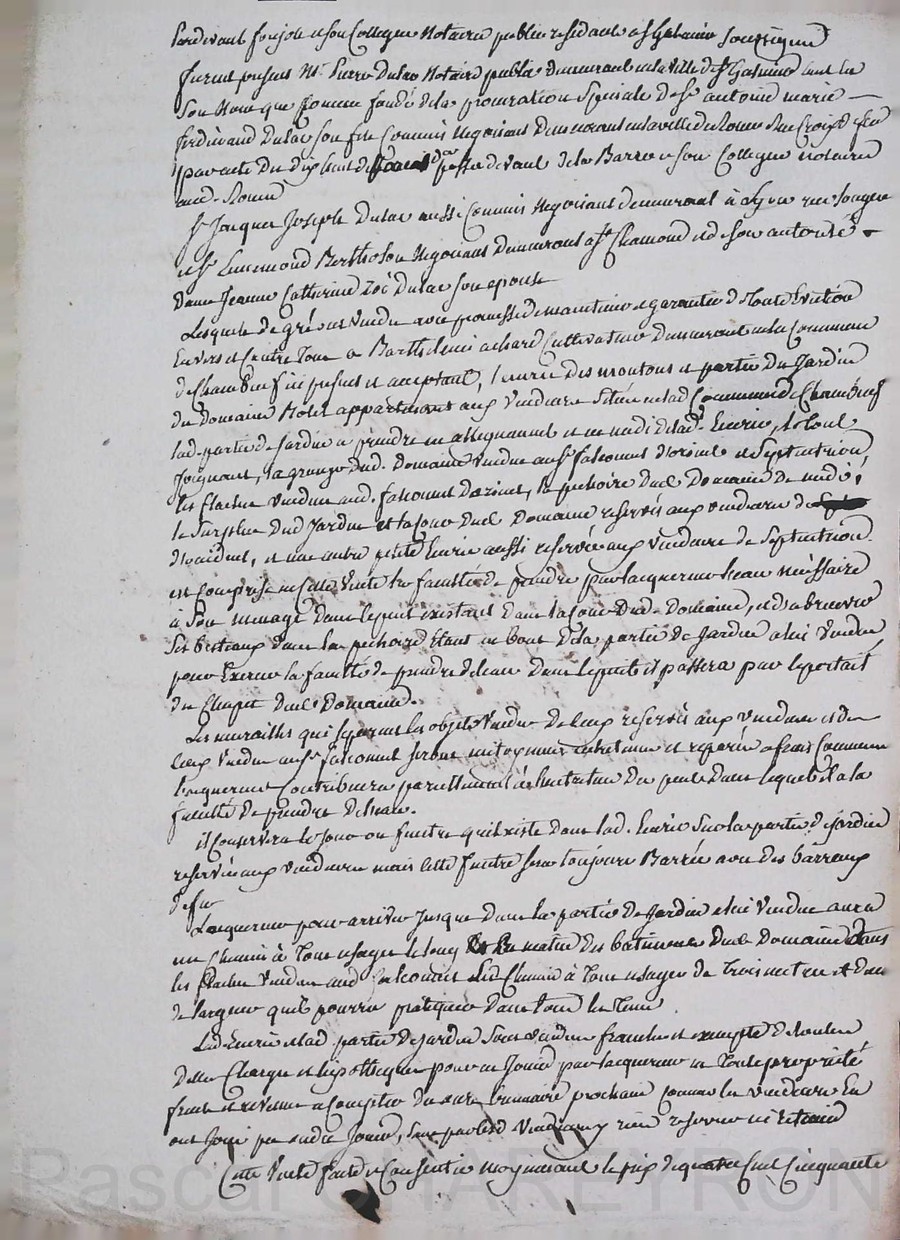 Pardevant foujols et son Collegue Notaires publics residants a St Galmier soussignés
furent presents Mr Pierre Dulac Notaire public demeurant en la ville de St Galmier tant en
son Nom que Comme fondé de la procuration Speciale de Sr antoine marie
ferdinand Dulac son fils Commis Negociant Demeurant en la ville de Rouen Rue
par acte du dix huit passé devant de la Barre et son Collegue notaires
aud. Rouen
Sr Jacques Joseph Dulac aussi Commis Negociant demeurant à Lyon rue
et Sr Ennemond Bertholon Negociant Demeurant a St Chamond et de son autorité
Dame Jeanne Catherine Zoé Dulac son epouse
Lesquels de gré ont Vendu avec promesse de maintenir et garantir de toute Eviction
Envers et Contre Tous a Barthelemi achard Cultivateur Demeurant en la Commune
de Chambeuf ici present et acceptant, l'ecurie des moutons et partie du Jardin
du Domaine appartenant aux Vendeurs situé en lad Commune de Chambeuf
lad. partie de Jardin a prendre en et en midi de lad. Ecurie, le tout
Joignant, la grange dud. Domaine Vendue au Sr falconnet d'orient et Septentrion,
les Vendus aud. falconnet d'orient, la pechoire dud Domaine de midi,
le Surplus dud Jardin et la Cour dud Domaine reservés aux vendeurs
d'occident, et une autre petite Ecurie aussi reservée aux Vendeurs de Septentrion
est Comprise en Cette Vente la faculté de prendre par lacquereur leau nécessaire
à Son menage Dans le puit existant Dans la Cour Dud. Domaine, et d'abreuver
Ses bestiaux dans la pechoire Etant au bout de la partie de Jardin a lui Vendue
pour Exercer la faculté de prendre de leau Dans le puits il passera par le portail
du dud Domaine.
Les murailles qui separent les objets Vendus de Ceux reservés aux Vendeurs et de
Ceux Vendus au Sr falconnet seront mitoyennes entretenues et reparées a frais Communs
lacquereur Contribuera pareillement à l'entretien du puits Dans lequel il a la
faculté de prendre de leau.
il Conservera le Jour ou fenetre qui Existe Dans lad. Ecurie Sur la partie de jardin
reservée aux Vendeurs mais Cette fenetre sera toujours Barrée avec des barreaux
de fer
Lacquereur pour arriver Jusque Dans la partie de Jardin a lui Vendue aura
un Chemin à Tous usages le long des batiments dud Domaine dans
les Vendus aud falconnet Chemin à Tous usages de trois metres
de largeur quil pourra pratiquer dans tous les Tems.
Lad. Ecurie et lad. partie de jardin Sont Vendues franches et exemptes de toutes
Dettes Charges et hipotteques pour en Jouir par lacquereur en Toute propriété
fruits et revenus a Compter du onze brumaire prochain Comme les Vendeurs En
ont Joui pu ou du Jouir, Sans par lesd Vendeurs y rien reserver ni retenir
Cette Vente faite et Consentie moyennant le prix de quatre Cent Cinquante
Pascal CHAREYRON